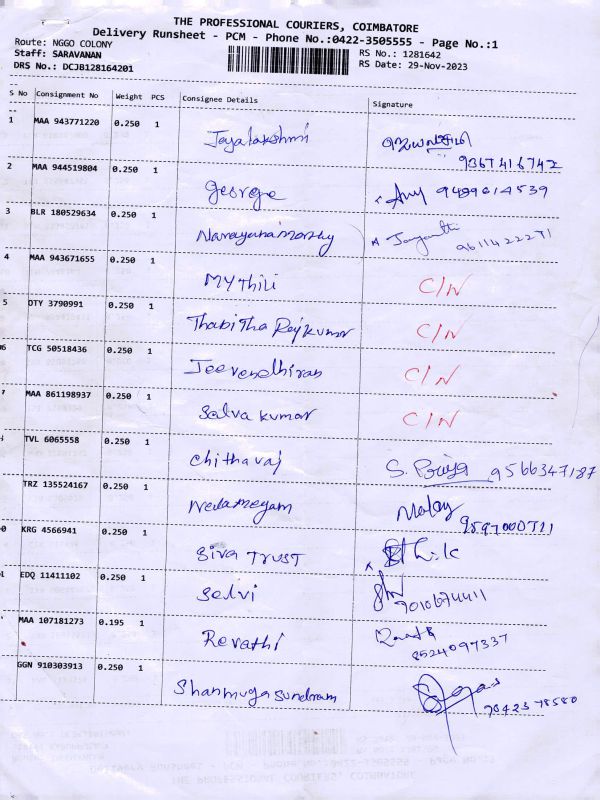 THE PROFESSIONAL COURIERS, COIMBATORE
Delivery Runsheet - PCM - Phone No.:0422-3505555 - Page No.:1
Route: NGGO COLONY RS No.: 1281642
Staff: SARAVANAN RS Date: 29-Nov-2023
DRS No.: DCJB128164201
S No Consignment No Weight PCS Consignee Details Signature
1 MAA 943771220 0.250 1 Jayalakshmi
9367416742
2 MAA 944519804 0.250 1 George 9489614539
3 BLR 180529634 0.250 1 Narayanamorthy Jayanthi 9611422271
4 MAA 943671655 0.250 1 Mythili C/N
5 OTY 3790991 0.250 1 Thabitha Rejkumar C/N
6 TCG 50518436 0.250 1 Jeevendhiran C/N
7 MAA 861198937 0.250 1 Selva kumar C/N
TVL 6065558 0.250 1 Chithavaj S. Priya 9566347187
TRZ 135524167 0.250 1 Nedamegam
9597000711
0 KRG 4566941 0.250 1 Siva TRUST
1 EDQ 11411102 0.250 1 Selvi
7010674411
MAA 107181273 0.195 1 Revathi
8524097337
GGN 910303913 0.250 1 Shanmuga sundram 7042378580